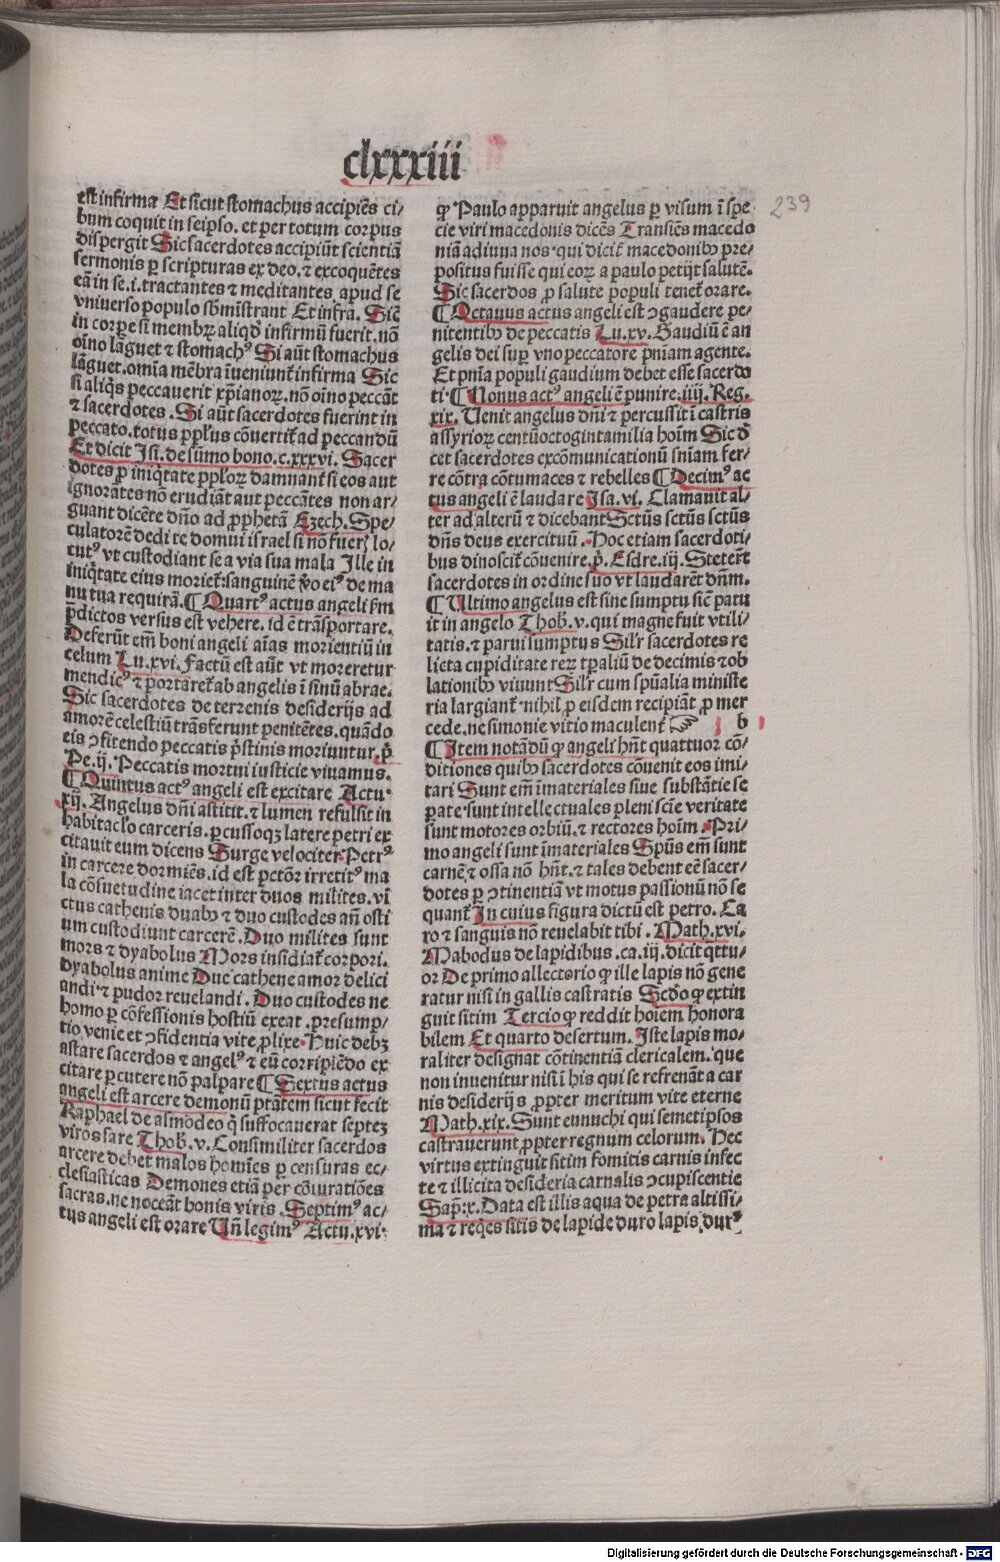 clxxxiii
239
est infirma Et sicut stomachus accipiēs ci⸗
bum coquit in seipso. et per totum corpus
dispergit Sic sacerdotes accipiūt scientiā
sermonis ꝑ scripturas ex deo. ⁊ excoquētes
eā in se .i. tractantes ⁊ meditantes apud se
vniuerso populo sb̄mistrant Et infra. Sic̄
in corpe si membꝝ aliqd̄ infirmū fuerit. nō
oīno lāguet ⁊ stomachꝰ Si aūt stomachus
lāguet. omīa mēbra īueniunt̄ infirma Sic
si aliq̄s peccauerit xp̄ianoꝝ. nō oīno peccāt
⁊ sacerdotes. Si aūt sacerdotes fuerint in
peccato. totus ppl̄us cōuertit̄ ad peccandū
Et dicit Isi. de sūmo bono. c. xxxvi. Sacer
dotes ꝓ iniq̄tate ppl̄oꝝ damnant̄ si eos aut
ignorātes nō erudiāt aut peccātes non ar⸗
guant dicēte dn̄o ad ꝓphetā Ezech. Spe⸗
culatorē dedi te domui israel si nō fueꝝ lo⸗
cutꝰ vt custodiant se a via sua mala Ille in
iniq̄tate eius moriet̄: sanguinē v̄o eiꝰ de ma
nu tua requirā. ¶ Quartꝰ actus angeli ẜm
p̄dictos versus est vehere. id ē trāsportare.
Deferūt em̄ boni angeli aīas morientiū in
celum Lu. xvi. Factū est aūt vt moreretur
mendicꝰ ⁊ portaret̄ ab angelis ī sinū abrae.
Sic sacerdotes de terrenis desiderijs ad
amorē celestiū trāsferunt penitētes. quādo
eis ꝯfitendo peccatis p̄stinis moriuntur. p̄.
Pe. ij. Peccatis mortui iusticie viuamus.
¶ Quintus actꝰ angeli est excitare Actu.
xij. Angelus dn̄i astitit. ⁊ lumen refulsit in
habitacl̄o carceris. ꝑcussoqꝫ latere petri ex
citauit eum dicens Surge velociter. Petrꝰ
in carcere dormiēs. id est pctōr irretitꝰ ma
la cōsuetudine iacet inter duos milites. vī
ctus cathenis duabꝯ ⁊ duo custodes an̄ osti
um custodiunt carcerē. Duo milites sunt
mors ⁊ dyabolus Mors insidiat̄ corpori.
dyabolus anime Due cathene amor delici
andi. ⁊ pudor reuelandi. Duo custodes ne
homo ꝑ cōfessionis hostiū exeat. presump⸗
tio venie et ꝯfidentia vite ꝓlixe. Huic debꝫ
astare sacerdos ⁊ angelꝰ ⁊ eū corripiēdo ex
citare ꝑcutere nō palpare ¶ Sextus actus
angeli est arcere demonū ptātem sicut fecit
Raphael de asmodeo q̄ suffocauerat septeꝫ
viros sare Thob. v. Consimiliter sacerdos
arcere debet malos homīes ꝑ censuras ec⸗
clesiasticas Demones etiā per cōiuratiōes
sacras. ne noceāt bonis viris. Septimꝰ ac⸗
tus angeli est orare Vn̄ legimꝰ Actu. xvi.
ꝙ Paulo apparuit angelus ꝑ visum ī spe
cie viri macedonis dicēs Transiēs macedo
niā adiuua nos. qui dicit̄ macedonibꝯ pre⸗
positus fuisse qui eoꝝ a paulo petijt salutē.
Sic sacerdos ꝓ salute populi tenet̄ orare.
¶ Octauus actus angeli est ꝯgaudere pe⸗
nitentibꝯ de peccatis Lu. xv. Gaudiū ē an
gelis dei suꝑ vno peccatore pn̄iam agente.
Et pnīa populi gaudium debet esse sacerdo
ti. ¶ Nonus actꝰ angeli ē punire. iiij. Reg.
xix. Uenit angelus dn̄i ⁊ percussit ī castris
assyrioꝝ centūoctogintamilia hoīm Sic d̄
cet sacerdotes excōmunicationū sn̄iam fer⸗
re cōtra cōtumaces ⁊ rebelles ¶ Decimꝰ ac
tus angeli ē laudare Isa. vi. Clamauit al⸗
ter ad alterū ⁊ dicebant Sctūs sctūs sctūs
dn̄s deus exercituū. Hoc etiam sacerdoti⸗
bus dinoscit̄ cōuenire. p̄. Esdre. iij. Stetert̄
sacerdotes in ordine suo vt laudarēt dn̄m.
¶ Ultimo angelus est sine sumptu sic̄ patu
it in angelo Thob. v. qui magne fuit vtili⸗
tatis. ⁊ parui sumptus Sil̄r sacerdotes re
licta cupiditate reꝝ tp̄aliū de decimis ⁊ ob
lationibꝯ viuunt Sil̄r cum spūalia ministe
ria largiant̄. nihil ꝓ eisdem recipiāt ꝓ mer
cede. ne simonie vitio maculent̄ ☞ b
¶ Item notādū ꝙ angeli hn̄t quattuor cō⸗
ditiones quibꝯ sacerdotes cōuenit eos imi⸗
tari Sunt em̄ īmateriales siue substātie se
pate. sunt intellectuales pleni scīe veritate
sunt motores orbiū. ⁊ rectores hoīm. Pri⸗
mo angeli sunt īmateriales Spūs em̄ sunt
carnē ⁊ ossa nō hn̄t. ⁊ tales debent eē sacer⸗
dotes ꝑ ꝯtinentiā vt motus passionū nō se
quant̄ In cuius figura dictū est petro. Ca
ro ⁊ sanguis nō reuelabit tibi. Math. xvi.
Mabodus de lapidibus. ca. iij. dicit qttu⸗
or De primo allectorio ꝙ ille lapis nō gene
ratur nisi in gallis castratis Scdo ꝙ extin
guit sitim Tercio ꝙ reddit hoīem honora
bilem Et quarto desertum. Iste lapis mo⸗
raliter designat cōtinentiā clericalem. que
non inuenitur nisi ī his qui se refrenāt a car
nis desiderijs ꝓpter meritum vite eterne
Math. xix. Sunt eunuchi qui semetipsos
castrauerunt ꝓpter regnum celorum. Hec
virtus extinguit sitim fomitis carnis infec
te ⁊ illicita desideria carnalis ꝯcupiscentie
Sap̄. x. Data est illis aqua de petra altissi⸗
ma ⁊ req̄es sitis de lapide duro lapis durꝰ
Digitalisierung gefördert durch die Deutsche Forschungsgemeinschaft - DFG